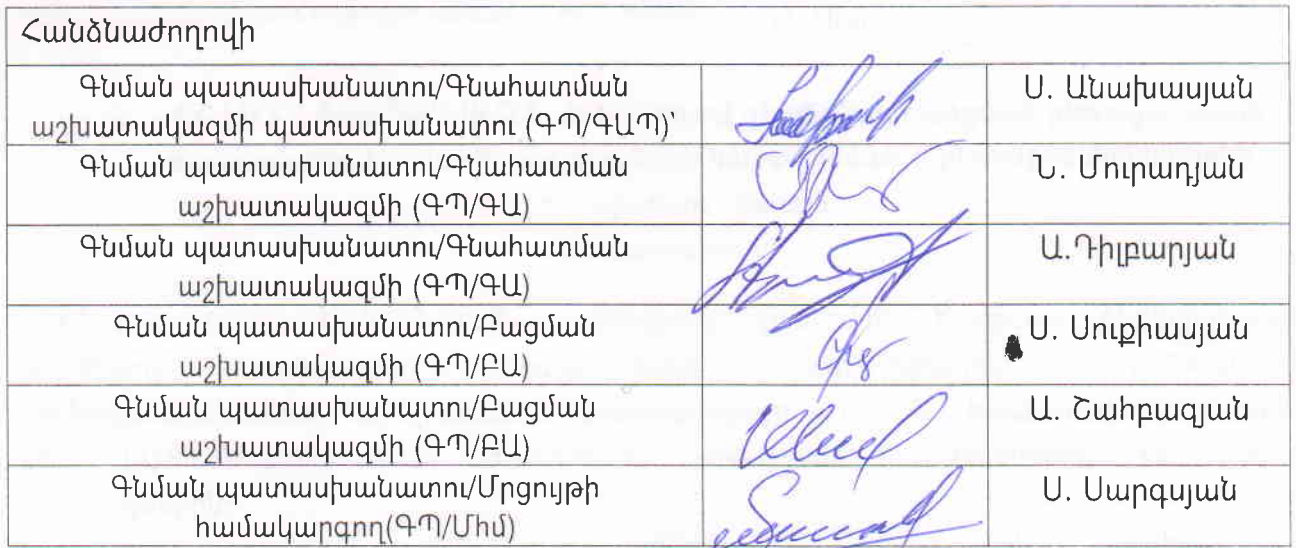 Հանձնաժողովի
Գնման պատասխանատու/Գնահատման
աշխատակազմի պատասխանատու (ԳՊ/ԳԱՊ)՝
Ս. Անախասյան
Գնման պատասխանատու/Գնահատման
աշխատակազմի (ԳՊ/ԳԱ)
Ն. Մուրադյան
Գնման պատասխանատու/Գնահատման
աշխատակազմի (ԳՊ/ԳԱ)
Ա.Դիլբարյան
Գնման պատասխանատու/Բացման
աշխատակազմի (ԳՊ/ԲԱ)
Ս. Սուքիասյան
Գնման պատասխանատու/Բացման
աշխատակազմի (ԳՊ/ԲԱ)
Ա. Շահբազյան
Գնման պատասխանատու/Մրցույթի
համակարգող(ԳՊ/Միմ)
Ս. Սարգսյան